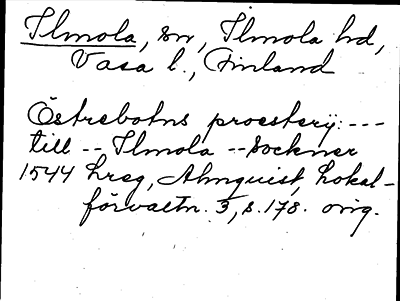 Ilmola, sn, Ilmola hd,
Vasa l., Finland
Östrebotns proestery: ---
till -- Ilmola -- Sockner
1544 hreg, Almquist, Lokal-
förvaltn. 3, s. 178. orig.